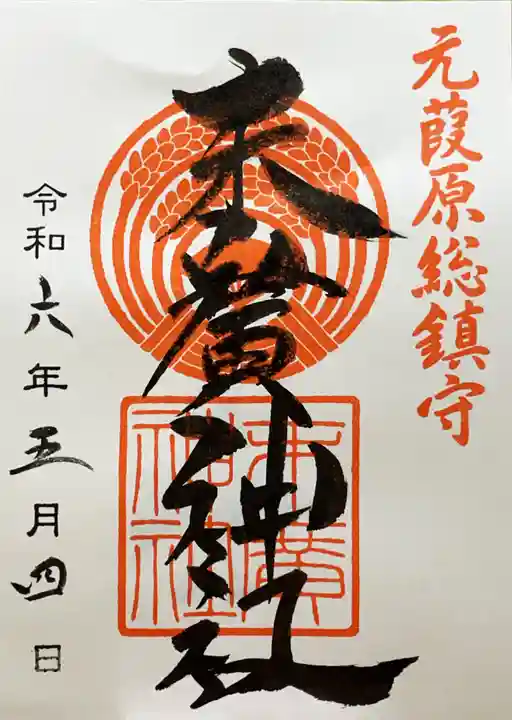 元葭原総鎮守
末廣神社
末廣
神社
令和六年五月四日